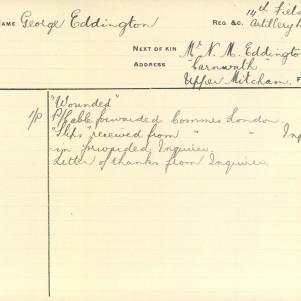 14th Fiel
NAME George Eddington REG. &C. Artillery
NEXT OF KIN Mr N. M. Eddingto
ADDRESS "Carnwath"
Upper Mitcham.
"Wounded"
Cable forwarded Commrs London.
received from " "
forwarded Inquirer.
Letter of thanks from Inquirer.